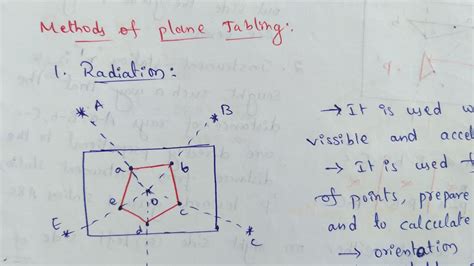 Methods of plane Tabling:.
1. Radiation:
A
B
→ It is used w
vissible and acce
→ It is used t
of points, prepare
and to calculate
→ orientation
a
b
o
e
c
d
E
C